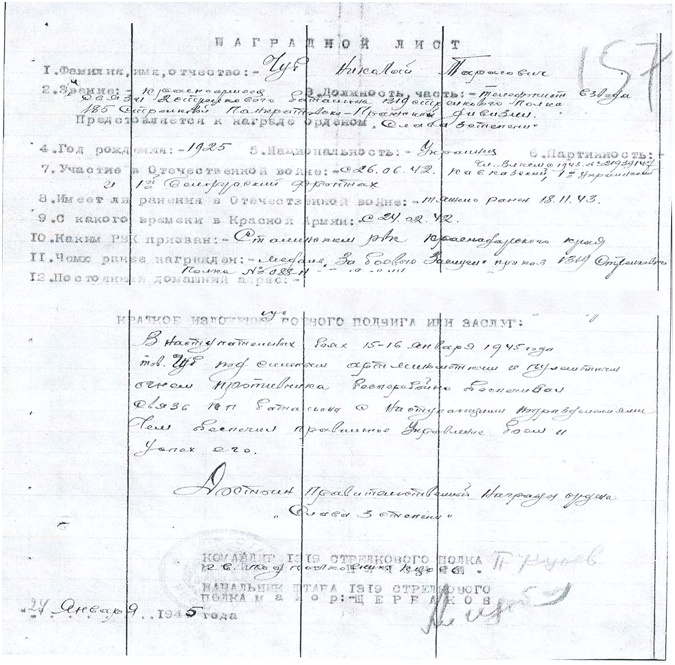 157
НАГРАДНОЙ ЛИСТ
1.Фамилия,имя,отчество:- Чуб Николай Тарасович
2.Звание:- Красноармеец 3.Должность,часть:- Телефонист взвода
связи 2 стрелкового батальона 1319 стрелкового полка
185 стрелковой Панкратовско-Пражской дивизии.
Представляется к награде орденом „Слава 3 степени"
4.Год рождения:- 1925 5.Национальность:- Украинец 6.Партийность:-
7.Участие в Отечественной войне:- с 26.06.42. Кавказский, 1й Украинский
и 1й Белорусский фронтах
8.Имеет ли ранения в Отечественной войне:- тяжело ранен 18.11.43.
9.С какого времени в Красной Армии:- с 24.02.42.
10.Каким РВК призван:- Сталинским рвк Краснодарского края
11.Чем ранее награжден:- медаль „За боевые Заслуги" приказ 1319 Стрелкового
Полка №
12.Постоянный домашний адрес:-
КРАТКОЕ ИЗЛОЖЕНИЕ БОЕВОГО ПОДВИГА ИЛИ ЗАСЛУГ:
В Наступательных боях 15-16 января 1945 года
тов. Чуб под сильным артиллерийским и пулеметным
огнем противника бесперебойно обеспечивал
связь КП батальона с Наступающими подразделениями
Чем обеспечил правильное Управление боем и
успех его.
Достоин Правительственной Награды ордена
„Слава 3 степени"
КОМАНДИР 1319 СТРЕЛКОВОГО ПОЛКА
НАЧАЛЬНИК ШТАБА 1319 СТРЕЛКОВОГО
ПОЛКА майор:- ЩЕРБАКОВ
"24" Января 1945 года